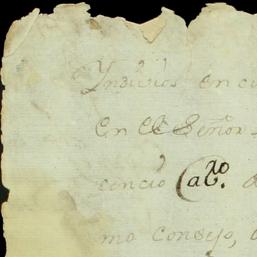 Yndivios en
En el Señor
cencio (ab.to
mo consejo,